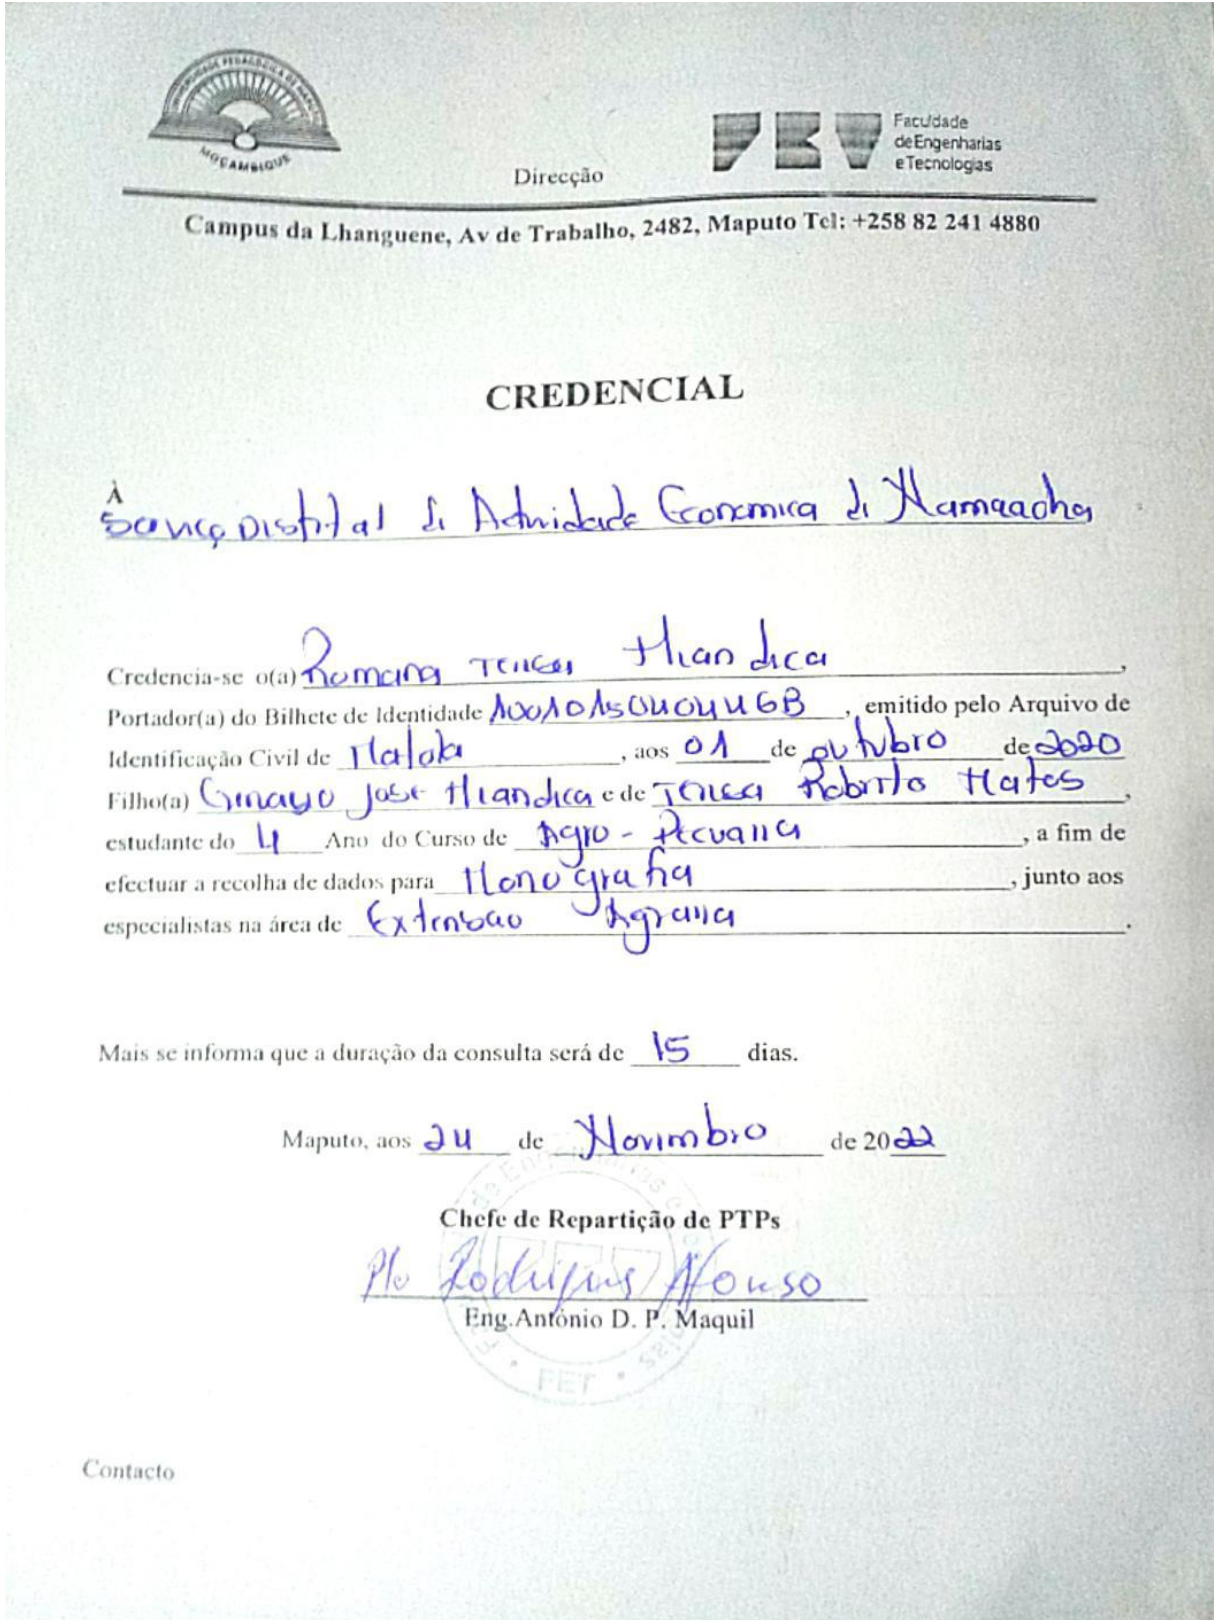 UNIVERSIDADE PEDAGÓGICA DE MAPUTO
MOÇAMBIQUE
Faculdade
de Engenharias
e Tecnologias
Direcção
Campus da Lhanguene, Av de Trabalho, 2482, Maputo Tel: +258 82 241 4880
CREDENCIAL
À
Serviço Distrital de Actividade Economica de Namaacha
Credencia-se o(a) Romana Teresa,
Portador(a) do Bilhete de Identidade, emitido pelo Arquivo de
Identificação Civil de Matola, aos 01 de outubro de 2020
Filho(a) José e de Teresa Roberto Matos,
estudante do 4 Ano do Curso de Agro-Pecuaria, a fim de
efectuar a recolha de dados para Monografia, junto aos
especialistas na área de Extensao Agraria.
Mais se informa que a duração da consulta será de 15 dias.
Maputo, aos 24 de Novembro de 2022
Chefe de Repartição de PTPs
Rodrigues Afonso
Eng.António D. P. Maquil
FET
Contacto